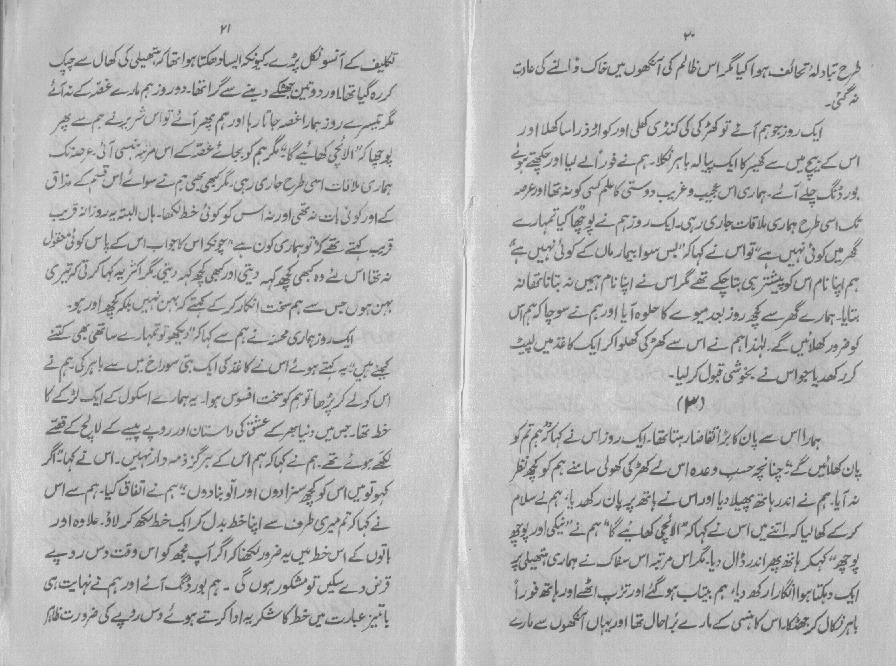 ۲۰
طرح تبادلۂ تحائف ہوا کیا مگر اس ظالم کی آنکھوں میں خاک ڈالنے کی عادت
نہ گئی۔
ایک روز جو ہم آئے تو کھڑکی کی کنڈی کھلی اور کواڑ ذرا سا کھلا اور
اس کے بیچ میں سے کھیر کا ایک پیالہ باہر نکلا۔ ہم نے فوراً لے لیا اور چکھتے ہوئے
بورڈنگ چلے آئے۔ ہماری اس عجیب و غریب دوستی کا علم کسی کو نہ تھا اور عرصہ
تک اسی طرح ہماری ملاقات جاری رہی۔ ایک روز ہم نے پوچھا کیا تمہارے
گھر میں کوئی نہیں ہے" تو اس نے کہا کہ "بس سوا بیمار ماں کے کوئی نہیں ہے"
ہم اپنا نام اس کو پیشتر ہی بتا چکے تھے مگر اس نے اپنا نام ہمیں نہ بتانا تھا نہ
بتایا۔ ہمارے گھر سے کچھ روز بعد میوے کا حلوہ آیا اور ہم نے سوچا کہ ہم اس
کو ضرور کھلائیں گے۔ لہٰذا ہم نے اس سے کھڑکی کھلوا کر ایک کاغذ میں لپیٹ
کر رکھ دیا جو اس نے بخوشی قبول کر لیا۔
(۳)
ہمارا اس سے پان کا بڑا تقاضا رہتا تھا۔ ایک روز اس نے کہا کہ "ہم تم کو
پان کھلائیں گے" چنانچہ حسب وعدہ اس نے کھڑکی کھولی سامنے ہم کو کچھ نظر
نہ آیا۔ ہم نے اندر ہاتھ پھیلا دیا اور اس نے ہاتھ پہ پان رکھ دیا، ہم نے سلام
کر کے کھا لیا کہ اتنے میں اس نے کہا کہ "الائچی کھائیے گا" ہم نے "نیکی اور پوچھ
پوچھ" کہہ کر ہاتھ پھر اندر ڈال دیا۔ مگر اس مرتبہ اس سفاک نے ہماری ہتھیلی پہ
ایک دہکتا ہوا انگارا رکھ دیا، ہم بیتاب ہو گئے اور تڑپ اٹھے اور ہاتھ فوراً
باہر نکال کر جھٹکا۔ اس کا ہنسی کے مارے برا حال تھا اور یہاں آنکھوں سے مارے
۲۱
تکلیف کے آنسو نکل پڑے کیونکہ ایسا دھکتا ہوا تھا کہ ہتھیلی کی کھال سے چپک
کر رہ گیا تھا اور دو تین جھٹکے دینے سے گرا تھا۔ دو روز ہم مارے غصہ کے نہ آئے
مگر تیسرے روز ہمارا غصہ جاتا رہا اور ہم پھر آئے تو اس شریر نے ہم سے پھر
پوچھا کہ "الائچی کھائیے گا" مگر ہم کو بجائے غصہ کے اس مرتبہ ہنسی آئی۔ عرصہ تک
ہماری ملاقات اسی طرح جاری رہی۔ مگر کبھی بھی ہم نے سوائے اس قسم کے مذاق
کے اور کوئی بات نہ تھی اور نہ اس کو کوئی خط لکھا۔ ہاں البتہ یہ روزانہ قریب
قریب کہتے تھے کہ "تو ہماری کون ہے" چونکہ اس کا جواب اس کے پاس کوئی معقول
نہ تھا اس لئے وہ کبھی کچھ کہہ دیتی اور کبھی کچھ کہہ دیتی، مگر اکثر یہ کہا کرتی کہ تیری
بہن ہوں جس سے ہم سخت انکار کر کے کہتے کہ بہن نہیں بلکہ کچھ اور ہو۔
ایک روز ہماری محسنہ نے ہم سے کہا کہ "دیکھو تو تمہارے ساتھی بھی کتنے
کمینے ہیں" یہ کہتے ہوئے اس نے کاغذ کی ایک بتی سوراخ میں سے باہر کی۔ ہم نے
اس کو لے کر پڑھا تو ہم کو سخت افسوس ہوا۔ یہ ہمارے اسکول کے ایک لڑکے کا
خط تھا۔ جس میں دنیا بھر کے عشق کی داستان اور روپے پیسے کے لالچ کے قصے
لکھے ہوئے تھے۔ ہم نے کہا کہ ہم اس کے ہرگز ذمہ دار نہیں۔ اس نے کہا "اگر
کہو تو میں اس کو کچھ سزا دوں اور اتو بنا دوں" ہم نے اتفاق کیا۔ ہم سے اس
نے کہا کہ تم میری طرف سے اپنا خط بدل کر ایک خط لکھ کر لاؤ۔ علاوہ اور
باتوں کے اس خط میں یہ ضرور لکھنا کہ اگر آپ مجھ کو اس وقت دس روپے
قرض دے سکیں تو مشکور ہوں گی۔ ہم بورڈنگ آئے اور ہم نے نہایت ہی
با تمیز عبارت میں خط کا شکریہ ادا کرتے ہوئے دس روپے کی ضرورت ظاہر